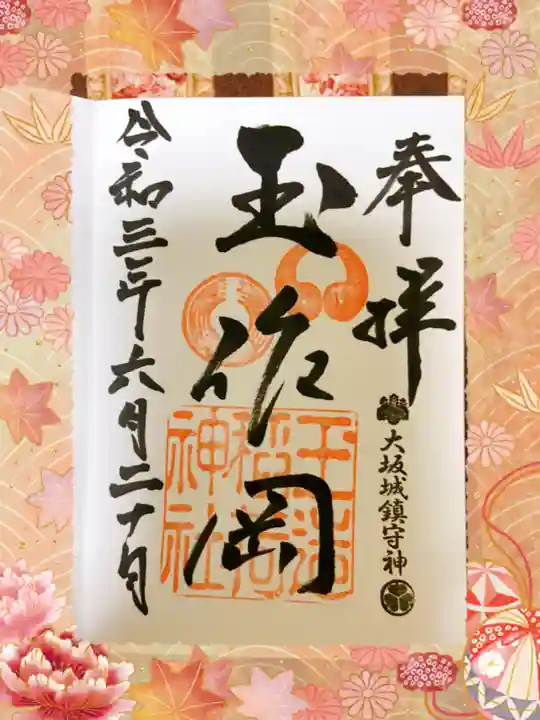 奉拝
大坂城鎮守神
玉作岡
玉造稲荷神社
令和三年六月二十日